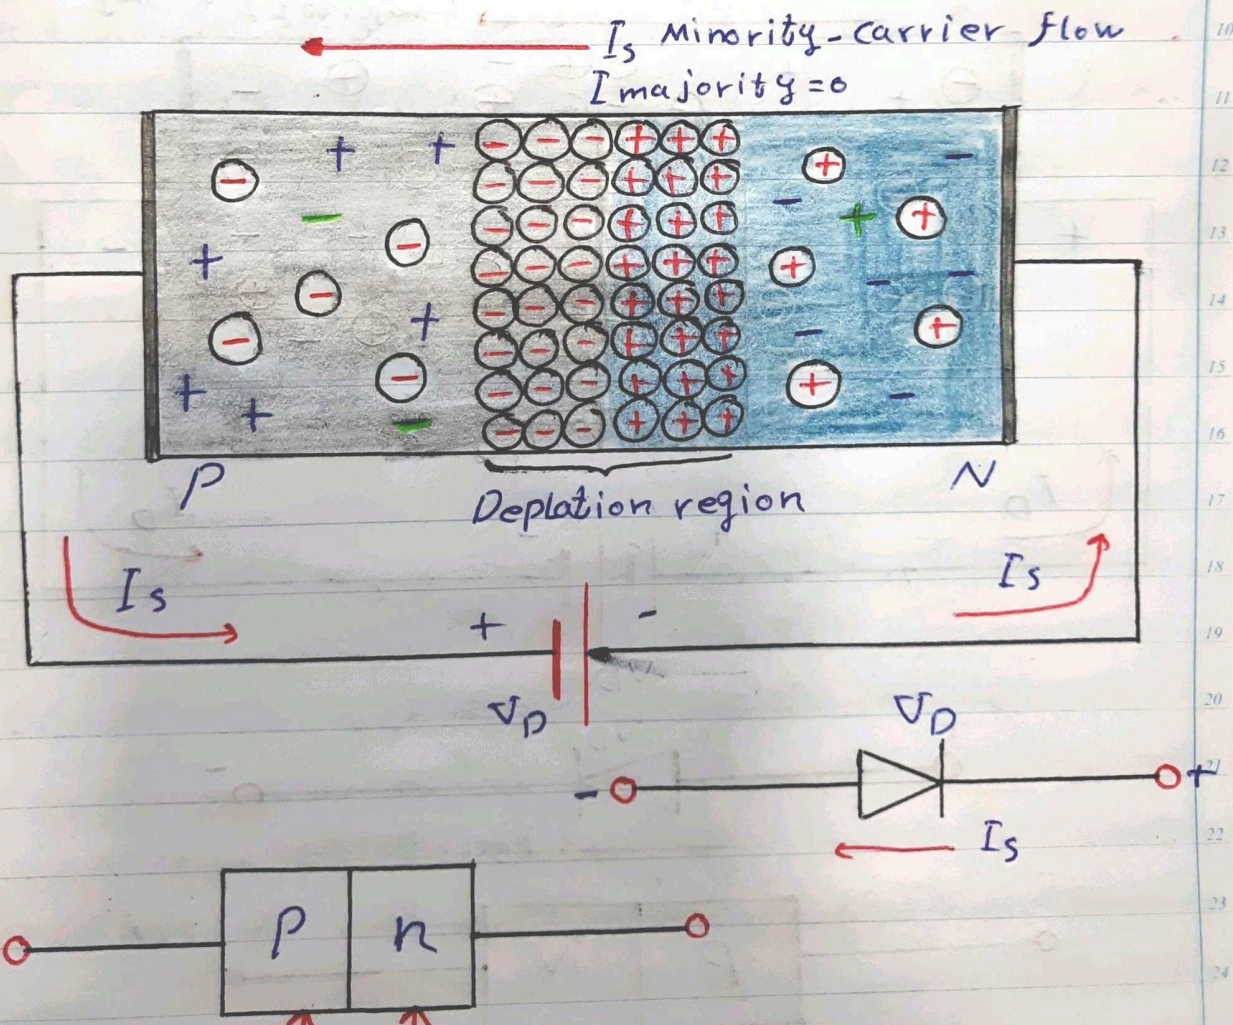 Is Minority-carrier flow
I majority=0
P
N
Deplation region
Is
Is
+
-
VD
VD
-
+
Is
P
n
10
11
12
13
14
15
16
17
18
19
20
21
22
23
24